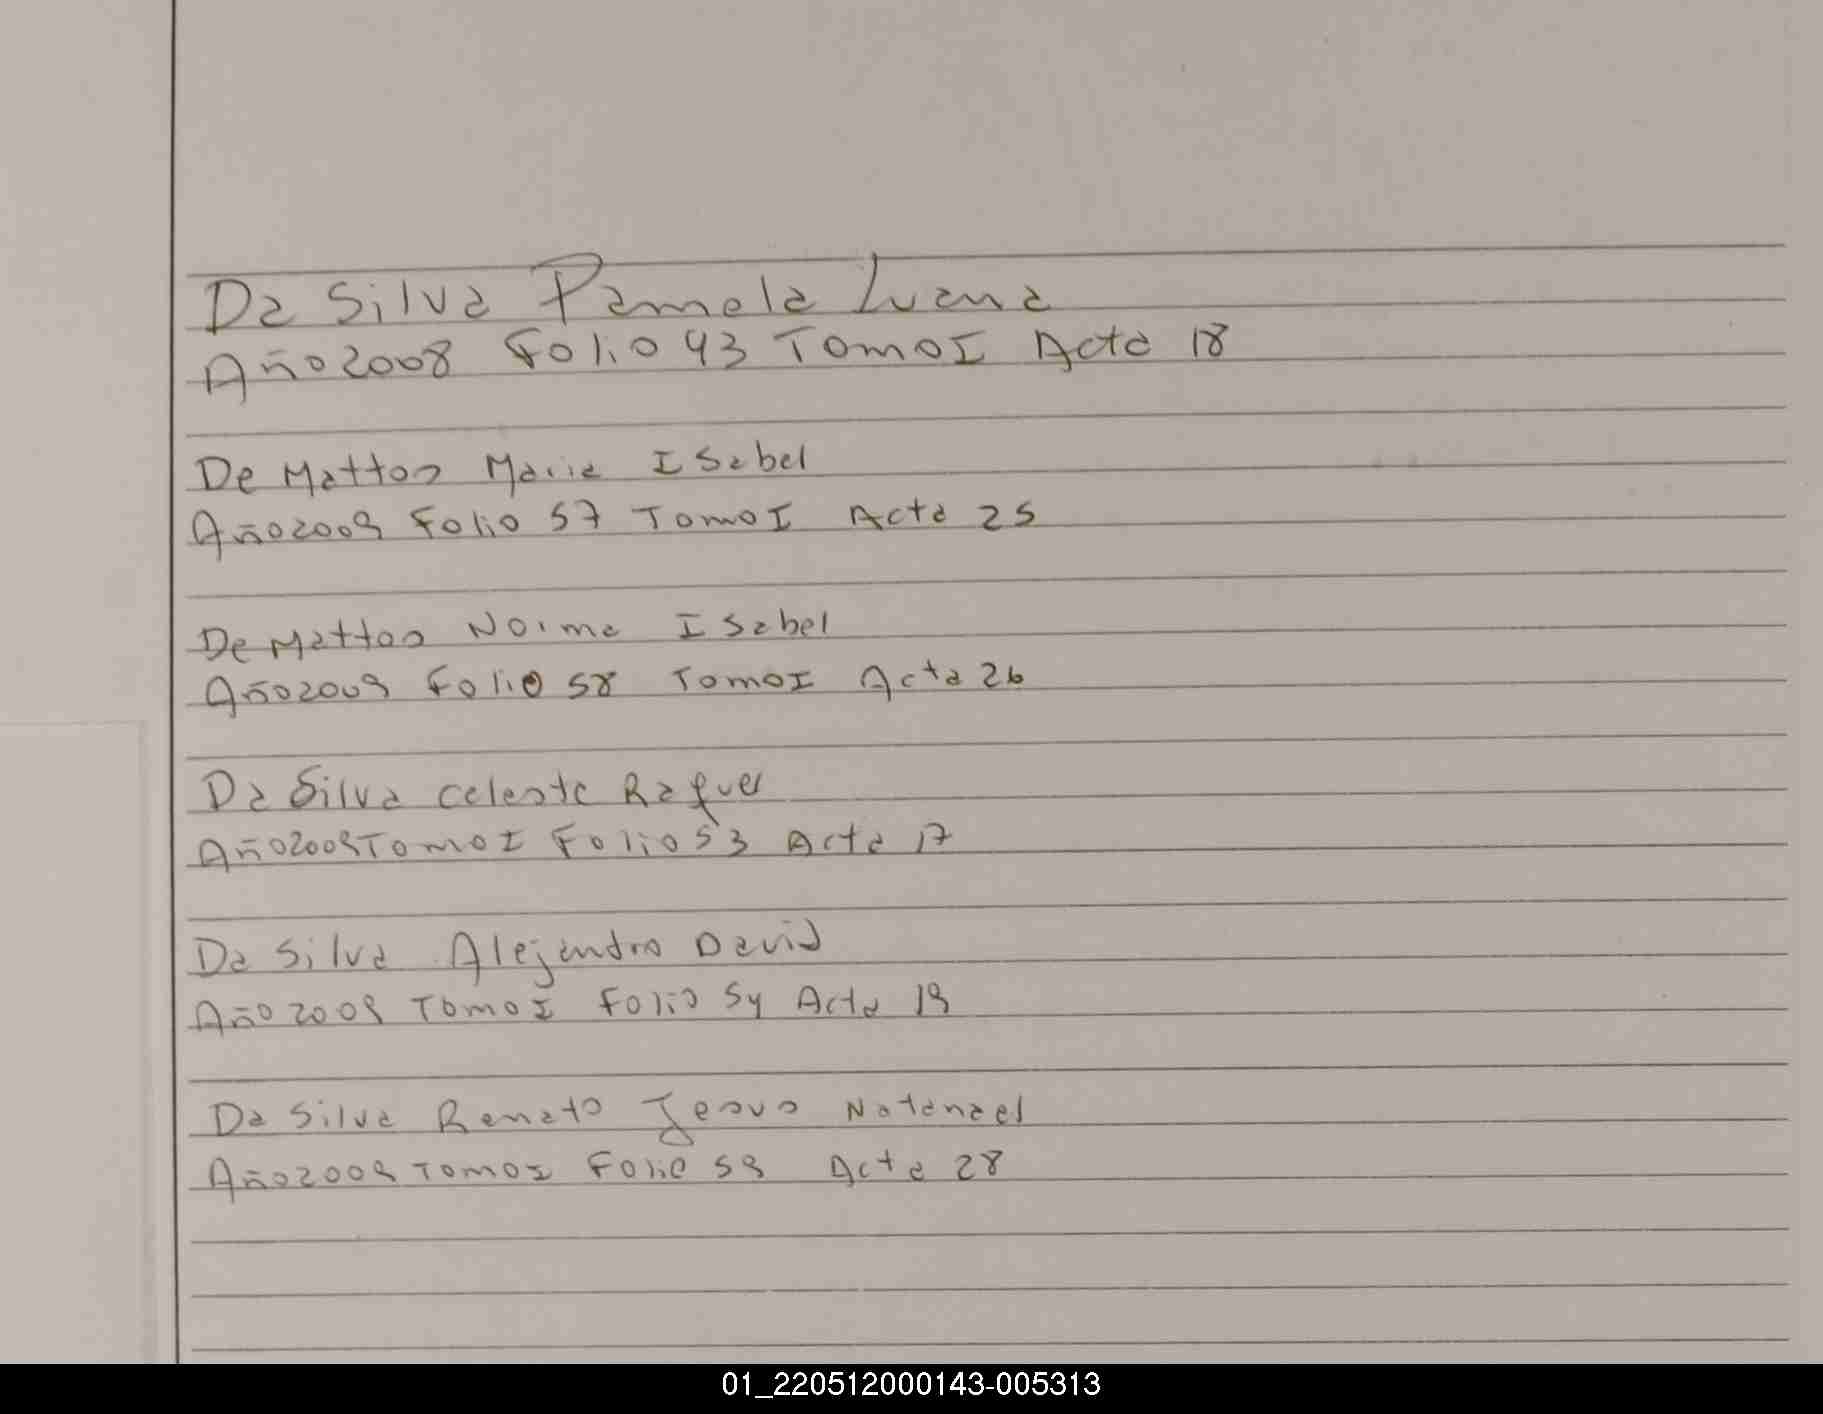 Da Silva Pamela Luana
Año 2008 Folio 43 Tomo I Acta 18
De Mattos Maria Isabel
Año 2009 Folio 57 Tomo I Acta 25
De Mattos Norma Isabel
Año 2009 Folio 58 Tomo I Acta 26
Da Silva Celeste Raquel
Año 2009 Tomo I Folio 53 Acta 17
Da Silva Alejandro David
Año 2009 Tomo I Folio 54 Acta 19
Da Silva Renato Jesus Natanael
Año 2009 Tomo I Folio 59 Acta 28
01_220512000143-005313